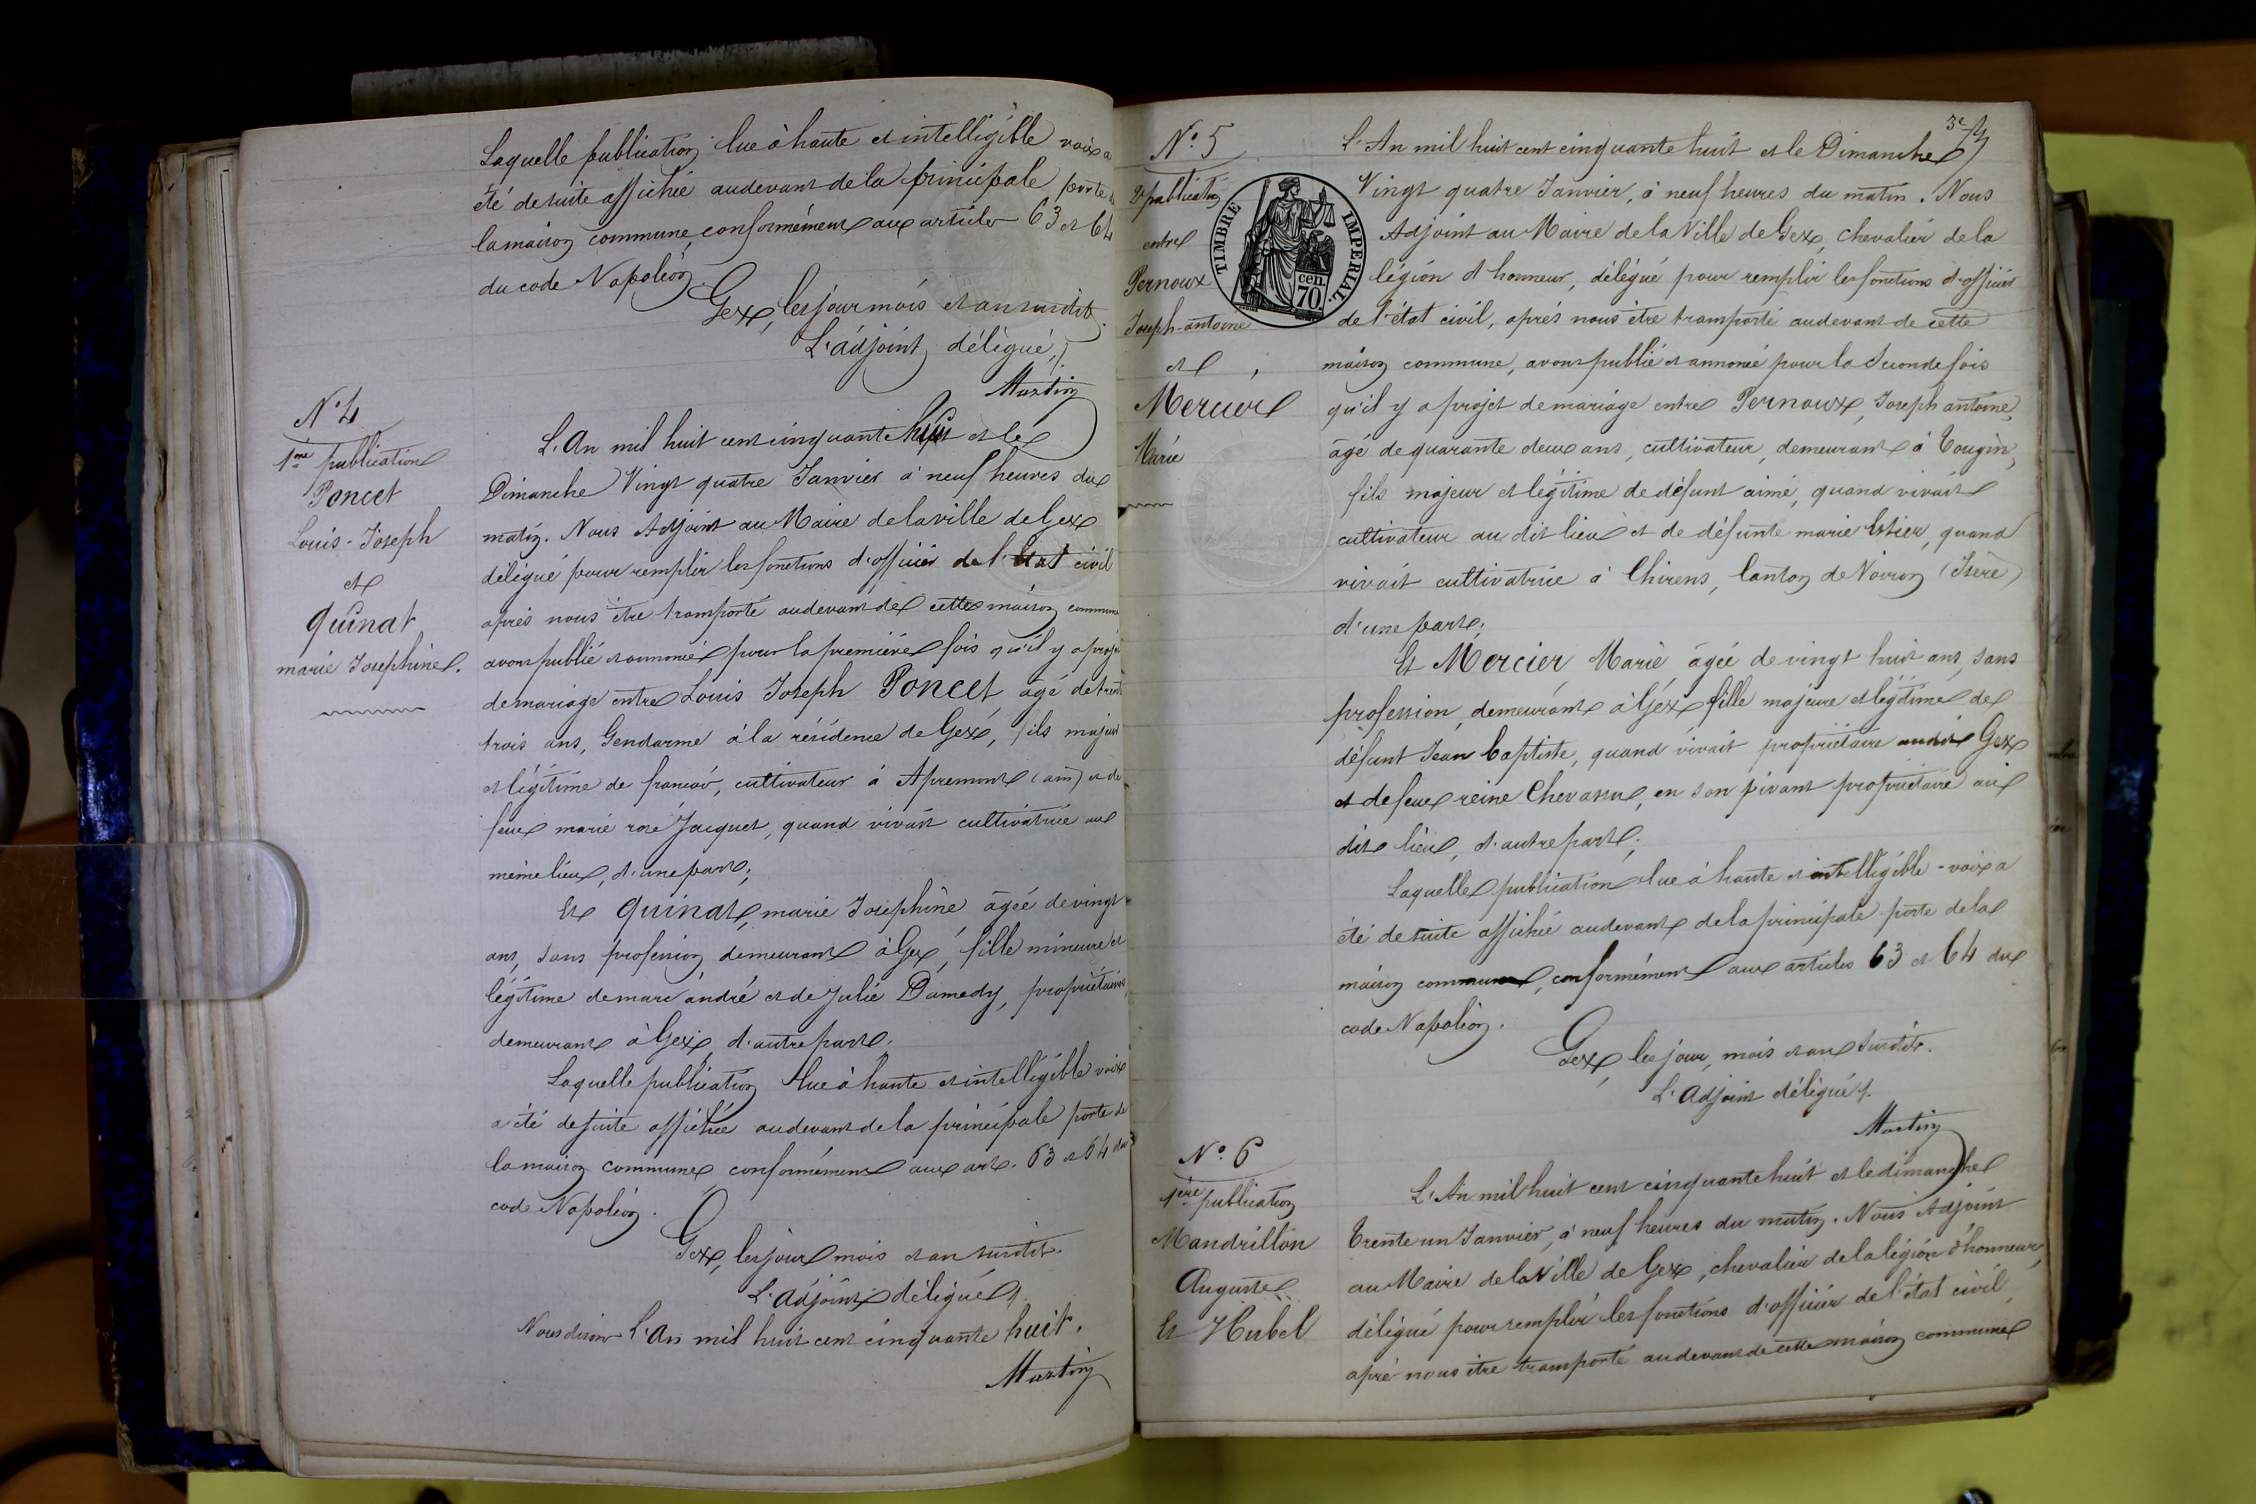 Laquelle publication lue à haute et intelligible voix a
été de suite affichée audevant de la principale porte de
la maison commune, conformément aux articles 63 et 64
du code Napoléon.
Gex, les jour mois et an susdits.
L'adjoint délégué,
Martin
N° 4
1ère publication
Poncet
Louis-Joseph
et
Quinat
marie Josephine.
L'An mil huit cent cinquante huit et le
Dimanche Vingt quatre Janvier à neuf heures du
matin. Nous Adjoint au Maire de la ville de Gex
délégué pour remplir les fonctions d'officier de l'Etat civil
après nous être transporté audevant de cette maison commune
avons publié et annoncé pour la première fois qu'il y a projet
de mariage entre Louis Joseph Poncet, âgé de trente
trois ans, Gendarme à la résidence de Gex, fils majeur
et légitime de françois, cultivateur à Apremont (ain) et de
feue marie rose Jacquet, quand vivait cultivatrice au
même lieu, d'une part;
Et Quinat, marie Josephine âgée de vingt
ans, sans profession demeurant à Gex, fille mineure et
légitime de marc andré et de Julie Damedy, propriétaires,
demeurant à Gex, d'autre part.
Laquelle publication lue à haute et intelligible voix
a été de suite affichée audevant de la principale porte de
la maison commune, conformément aux art. 63 et 64 du
code Napoléon.
Gex, les jour mois et an susdits.
L'adjoint délégué,
Nous disons L'An mil huit cent cinquante huit.
Martin
3e
N° 5
2e publication
entre
Pernoux
Joseph-antoine
et
Mercier
Marie
TIMBRE IMPERIAL.
cen.
70
L'An mil huit cent cinquante huit et le Dimanche
Vingt quatre Janvier, à neuf heures du matin. Nous
Adjoint au Maire de la Ville de Gex, chevalier de la
légion d'honneur, délégué pour remplir les fonctions d'officier
de l'état civil, après nous être transporté audevant de cette
maison commune, avons publié et annoncé pour la Seconde fois
qu'il y a projet de mariage entre Pernoux, Joseph antoine,
âgé de quarante deux ans, cultivateur, demeurant à Tougin,
fils majeur et légitime de défunt aimé, quand vivait
cultivateur au dit lieu et de défunte marie Estier, quand
vivait cultivatrice à Chirens, Canton de Voiron (Isère)
d'une part;
Et Mercier, Marie âgée de vingt huit ans, sans
profession, demeurant à Gex fille majeure et légitime de
défunt Jean Baptiste, quand vivait propriétaire audit Gex
et de feue reine Chevassu, en son vivant propriétaire au
dit lieu, d'autre part;
Laquelle publication lue à haute et intelligible-voix a
été de suite affichée audevant de la principale porte de la
maison commune, conformément aux articles 63 et 64 du
code Napoléon.
Gex, les jour, mois et an susdits.
L'adjoint délégué.
Martin
N° 6
1ère publication
Mandrillon
Auguste
Et Hubel
L'An mil huit cent cinquante huit et le dimanche
Trente un Janvier, à neuf heures du matin. Nous Adjoint
au Maire de la Ville de Gex, chevalier de la légion d'honneur,
délégué pour remplir les fonctions d'officier de l'état civil,
après nous être transporté audevant de cette maison commune